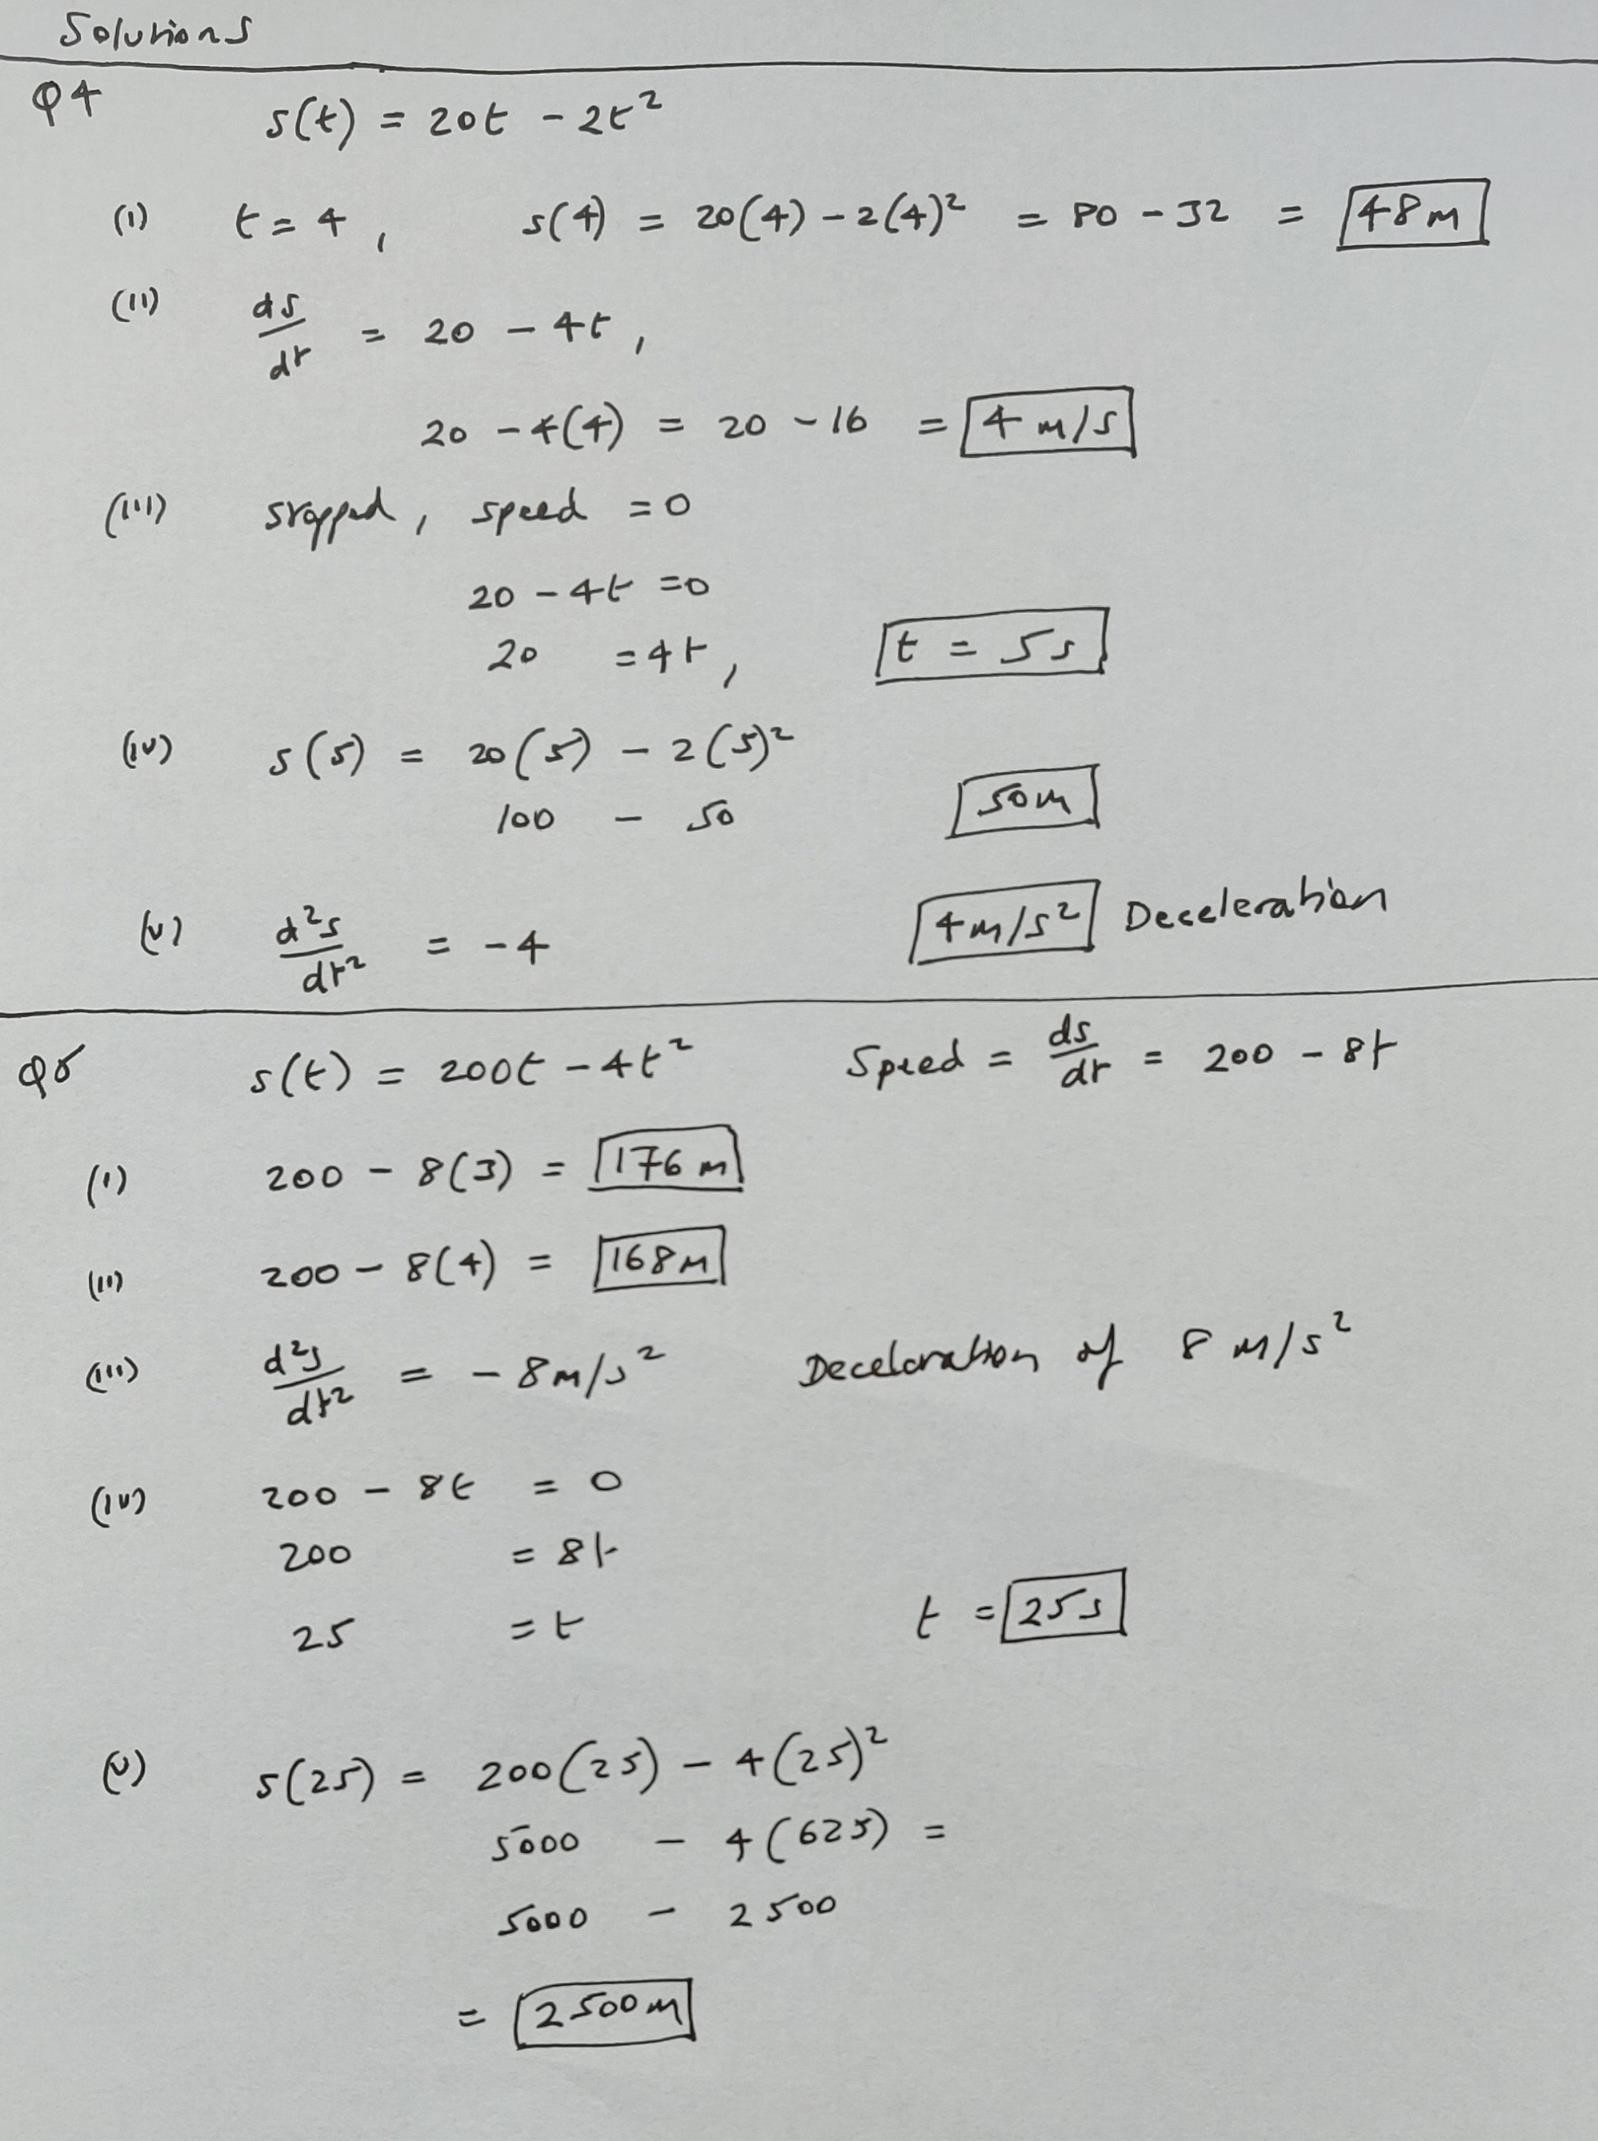 Solutions
Q4
s(t) = 20t - 2t²
(i) t = 4, s(4) = 20(4) - 2(4)² = 80 - 32 = 48m
(ii) ds/dt = 20 - 4t,
20 - 4(4) = 20 - 16 = 4 m/s
(iii) stopped, speed = 0
20 - 4t = 0
20 = 4t, t = 5s
(iv) s(5) = 20(5) - 2(5)²
100 - 50 50m
(v) d²s/dt² = -4 4m/s² Deceleration
Q5 s(t) = 200t - 4t² Speed = ds/dt = 200 - 8t
(i) 200 - 8(3) = 176 m
(ii) 200 - 8(4) = 168m
(iii) d²s/dt² = -8m/s² Deceleration of 8 m/s²
(iv) 200 - 8t = 0
200 = 8t
25 = t t = 25s
(v) s(25) = 200(25) - 4(25)²
5000 - 4(625) =
5000 - 2500
= 2500m